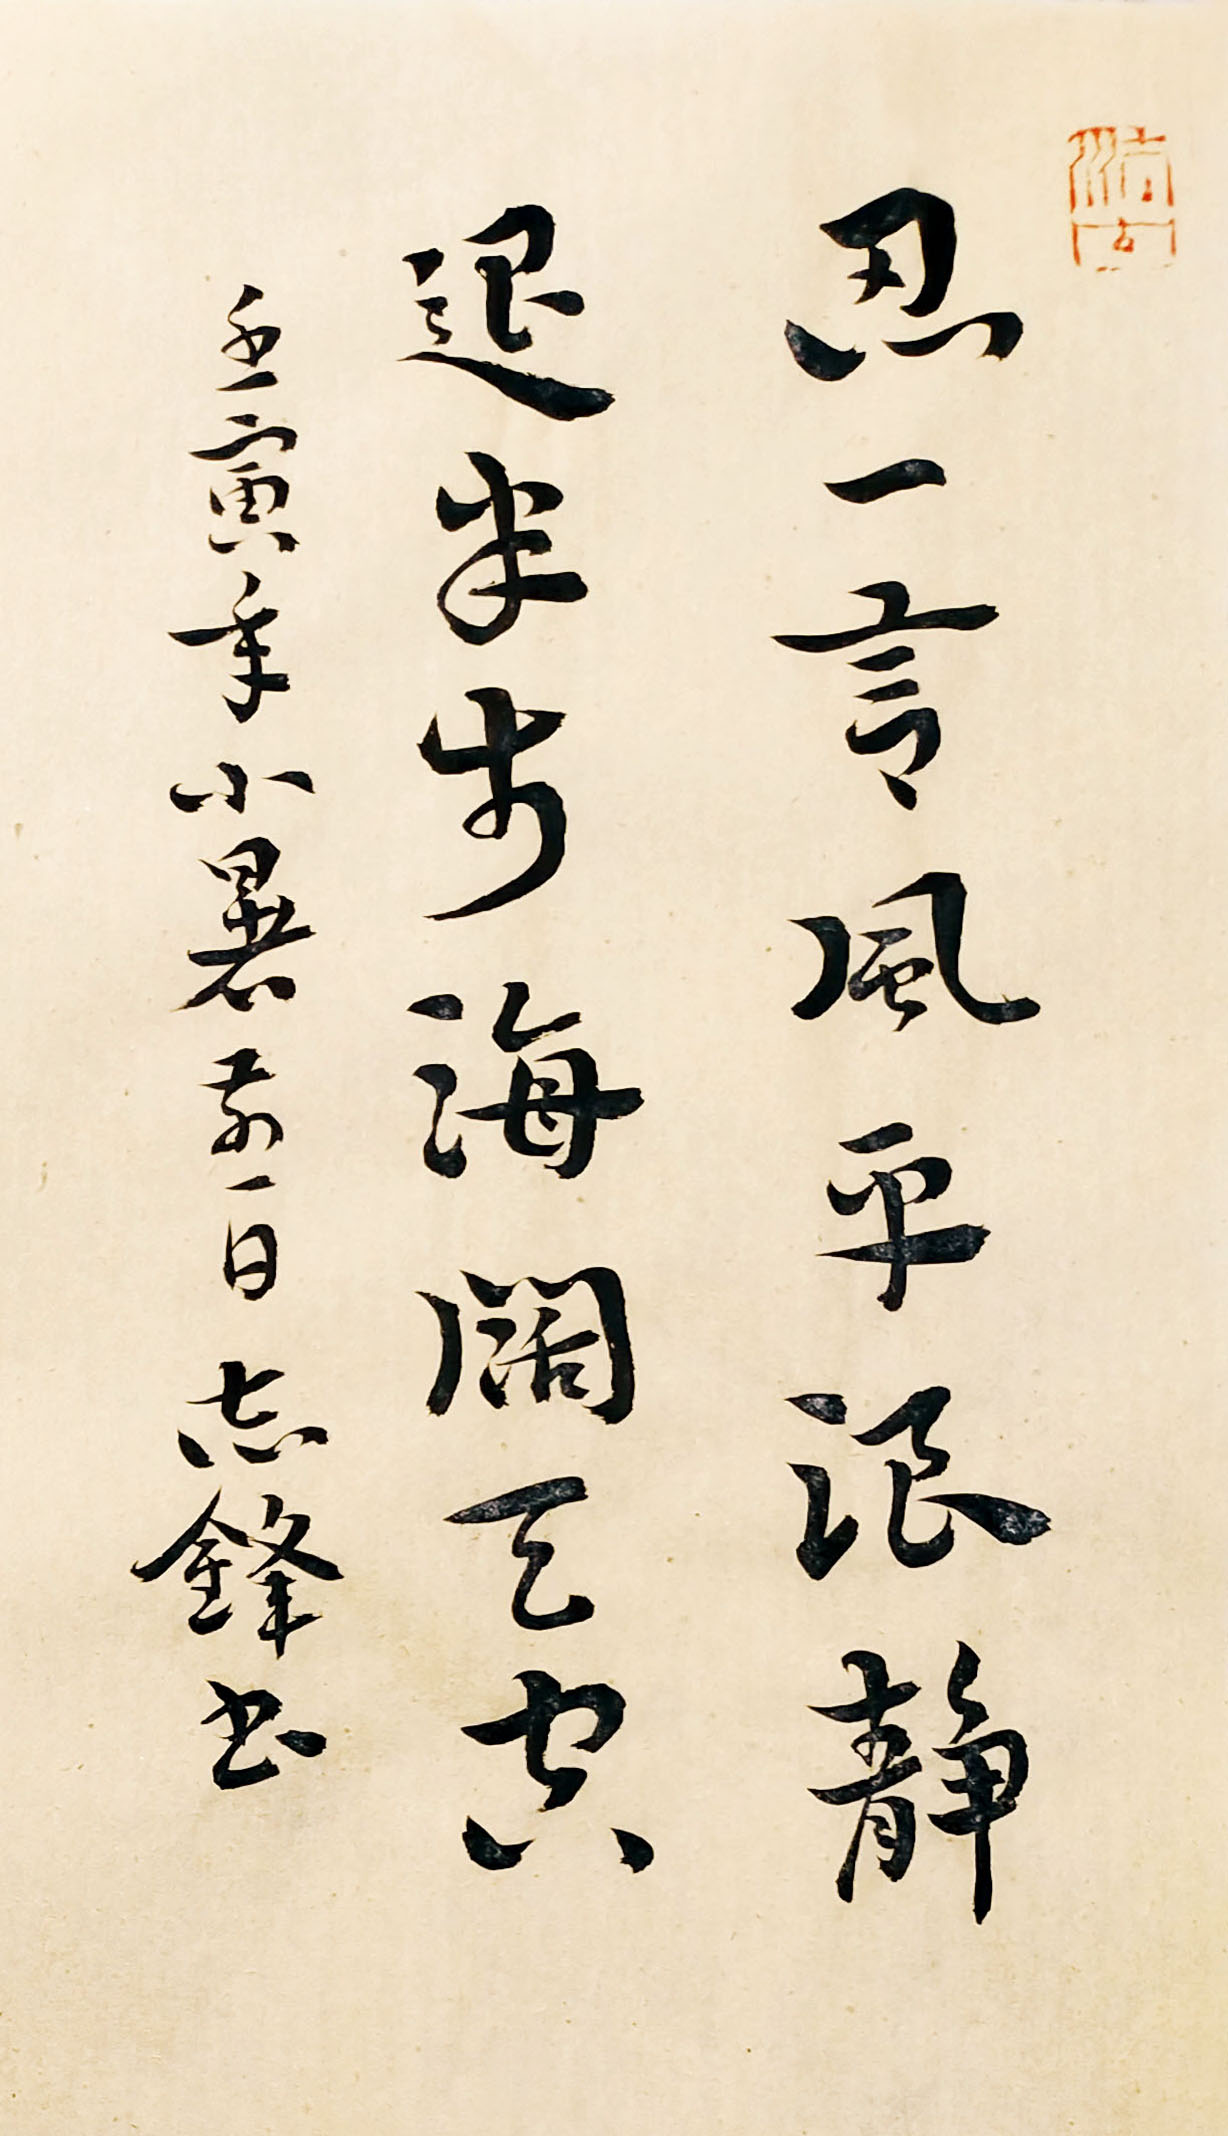 忍一言風平浪靜
退半步海闊天空
壬寅年小暑前一日志鋒书